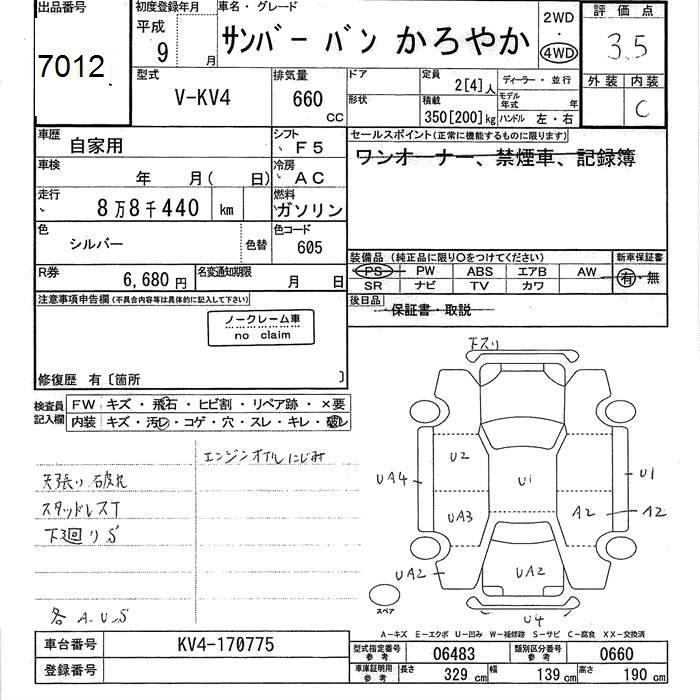 出品番号
7012
初度登録年月
平成
9 月
車名・グレード
サンバー バン かろやか
2WD
・
4WD
評価点
3.5
外装 内装
C
型式
V-KV4
排気量
660
CC
ドア
形状
定員
2[4]人
積載
350[200]kg
ディーラー・並行
モデル年式 年
ハンドル 左・右
車歴
自家用
シフト
、F5
車検
年 月( 日)
冷房
、AC
走行
、 8万8千440 km
燃料
ガソリン
色
シルバー
色替
色コード
605
R券
6,680円
名変通知期限
月 日
セールスポイント(正常に機能するものに限ります)
ワンオーナー、禁煙車、記録簿
装備品(純正品に限り○をつけてください)
PS PW ABS エアB AW
SR ナビ TV カワ
新車保証書
有・無
後日品
保証書・取説
注意事項申告欄(不具合内容等は具体的に記入して下さい)
ノークレーム車
no claim
修復歴 有〔箇所 〕
検査員記入欄
FW キズ・飛石・ヒビ割・リペア跡・×要
内装 キズ・汚レ・コゲ・穴・スレ・キレ・破レ
エンジンオイルにじみ
天張り破れ
スタッドレスT
下廻りS
各 A.U.S
下スリ
U2
UA4
U1
U1
UA3
A2
A2
UA2
UA2
U4
スペア
A-キズ E-エクボ U-凹み W-補修跡 S-サビ C-腐食 XX-交換済
車台番号
KV4-170775
登録番号
型式指定番号
参考
06483
類別区分番号
参考
0660
車庫証明用
参考
長さ
329 cm
幅
139 cm
高さ
190 cm